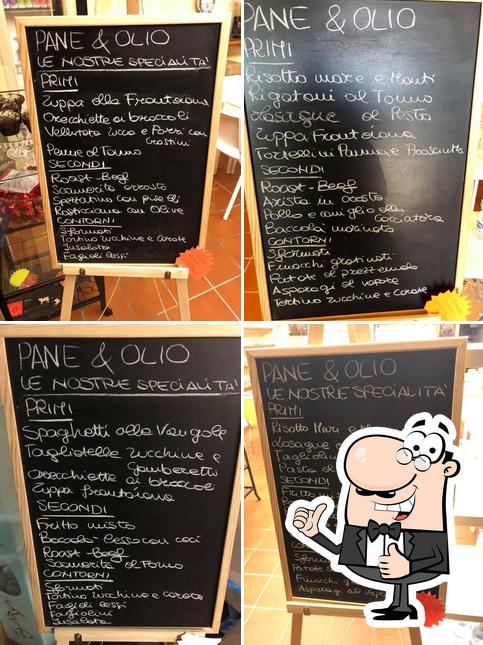 PANE & OLIO
LE NOSTRE SPECIALITA'
PRIMI
Zuppa alla Frantoiana
Orecchiette ai broccoli
Vellutata Zucca e Porri con
Crostini
Penne al Tonno
SECONDI
Roast-Beef
Scamerita arrosto
Spezzatino con piselli
Rosticciana con olive
CONTORNI
Sformati
Tortino zucchine e carote
Insalata
Fagioli lessi
PANE & OLIO
PRIMI
Risotto mare e Monti
Rigatoni al Tonno
Lasagne al Pesto
Zuppa Frantoiana
Tortellini Panna e Prosciutto
SECONDI
Roast-Beef
Arista in crosta
Pollo e coniglio alla
Cacciatora
Baccalà marinato
CONTORNI
Sformati
Finocchi gratinati
Patate al prezzemolo
Asparagi al vapore
Tortino zucchine e carote
PANE & OLIO
LE NOSTRE SPECIALITA'
PRIMI
Spaghetti alle Vongole
Tagliatelle zucchine e
Gamberetti
Orecchiette ai broccoli
Zuppa frantoiana
SECONDI
Fritto misto
Baccalà lesso con ceci
Roast-Beef
Scamerita al Forno
CONTORNI
Sformati
Tortino zucchine e carote
Fagioli lessi
Fagiolini
Insalata
PANE & OLIO
LE NOSTRE SPECIALITÀ
PRIMI
Risotto Mari
Lasagne
Pasta
SECONDI
Fritto
Patate
Finocchi
Asparagi al vap